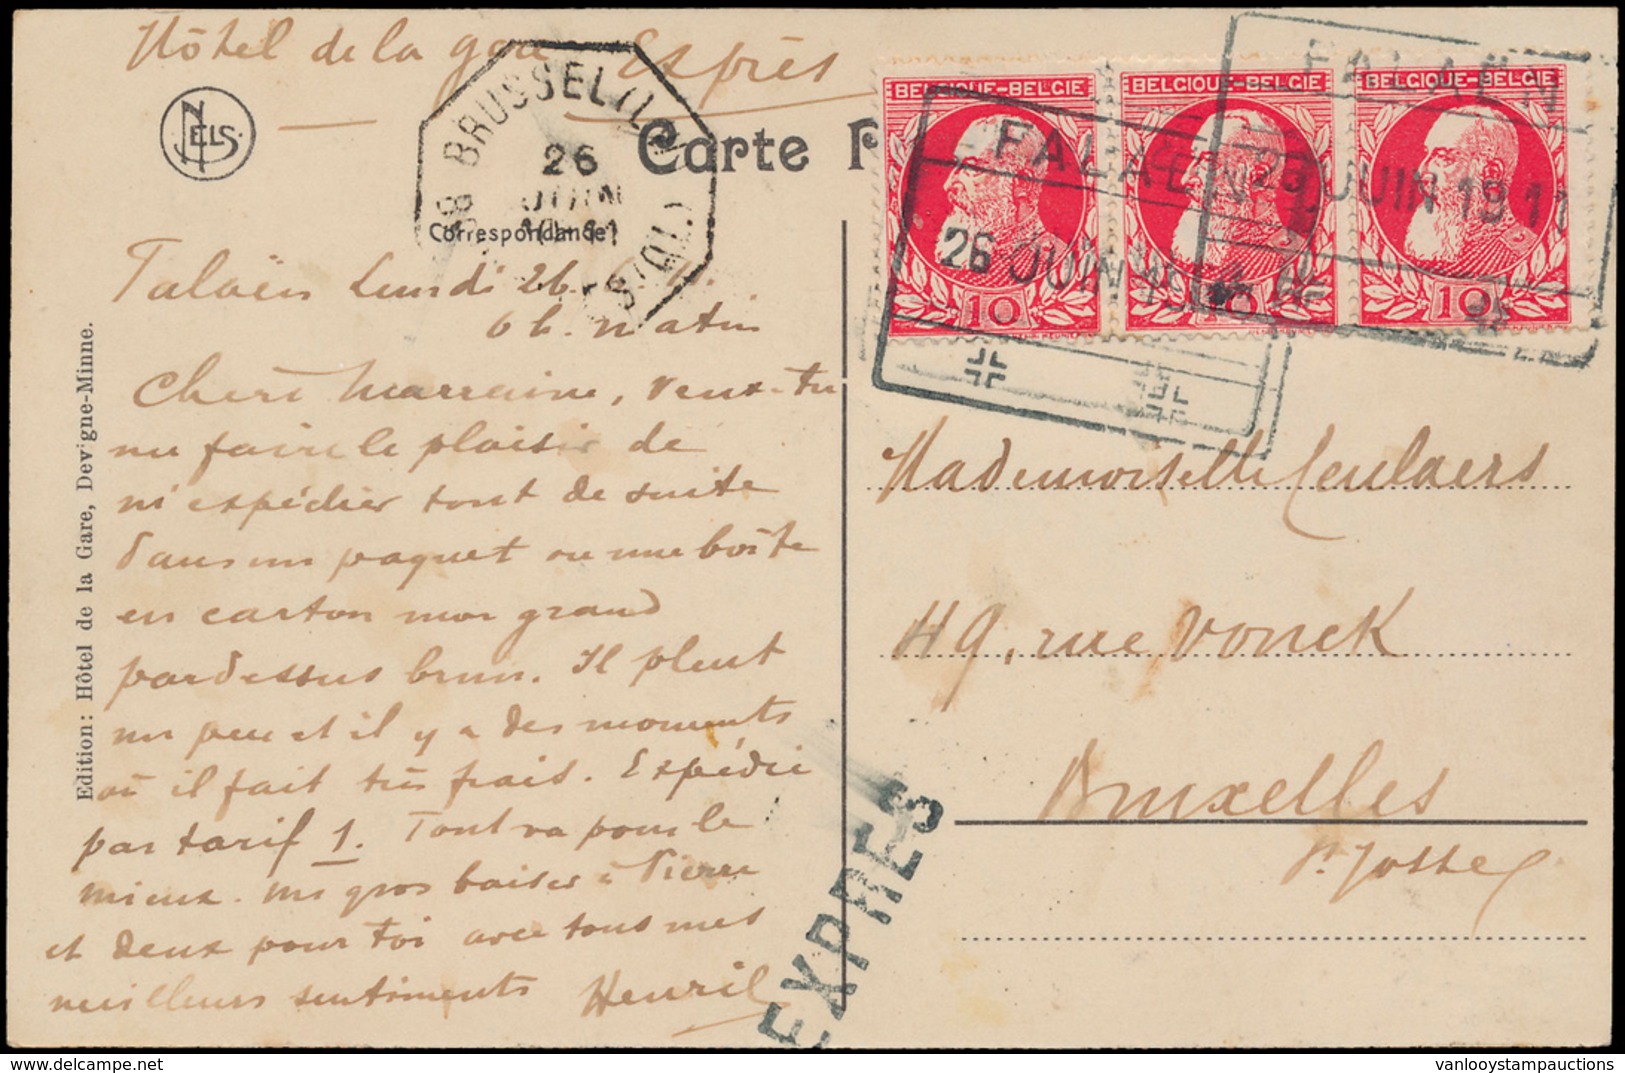 Hôtel de la gare Exprès
NELS
Carte P
BELGIQUE-BELGIE BELGIQUE-BELGIE BELGIQUE-BELGIE
10 10 10
FALAËN
26 JUIN 1911
FALAËN
26 JUIN 1911
BRUSSEL (LE
26
JUIN
11
Correspondance
Falaën Lundi 26.
6 h. matin
Chère Marraine, veux-tu
me faire le plaisir de
m'expédier tout de suite
dans un paquet ou une boîte
en carton mon grand
pardessus brun. Il pleut
un peu et il y a des moments
où il fait très frais. Expédie
par tarif 1. Tout va pour le
mieux. Un gros baiser à Pierre
et deux pour toi avec tous mes
meilleurs sentiments Henri
Edition: Hôtel de la Gare, Devigne-Minne.
Mademoiselle Ceulaers
49, rue Vonck
Bruxelles
St Josse
EXPRES
vanlooystampauctions